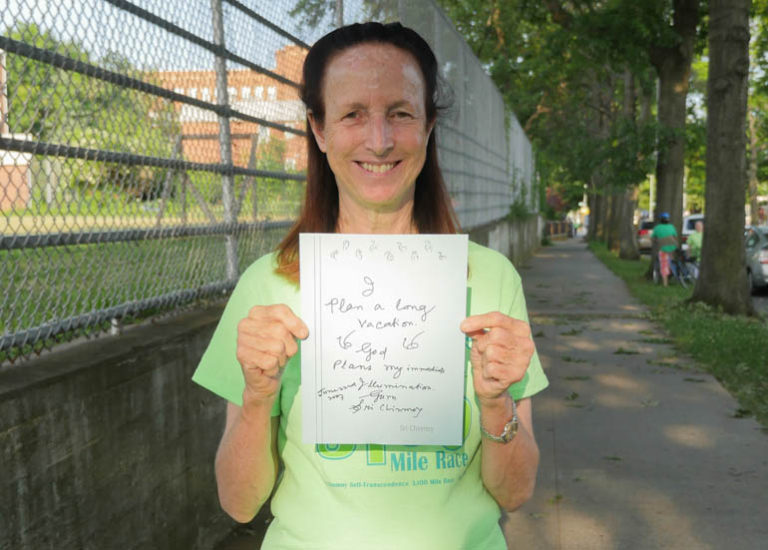 I
Plan a long
vacation.
God
Plans my immediate
Illumination.
Guru
Sri Chinmoy
Sri Chinmoy
Mile Race
Self-Transcendence 3,100 Mile Race